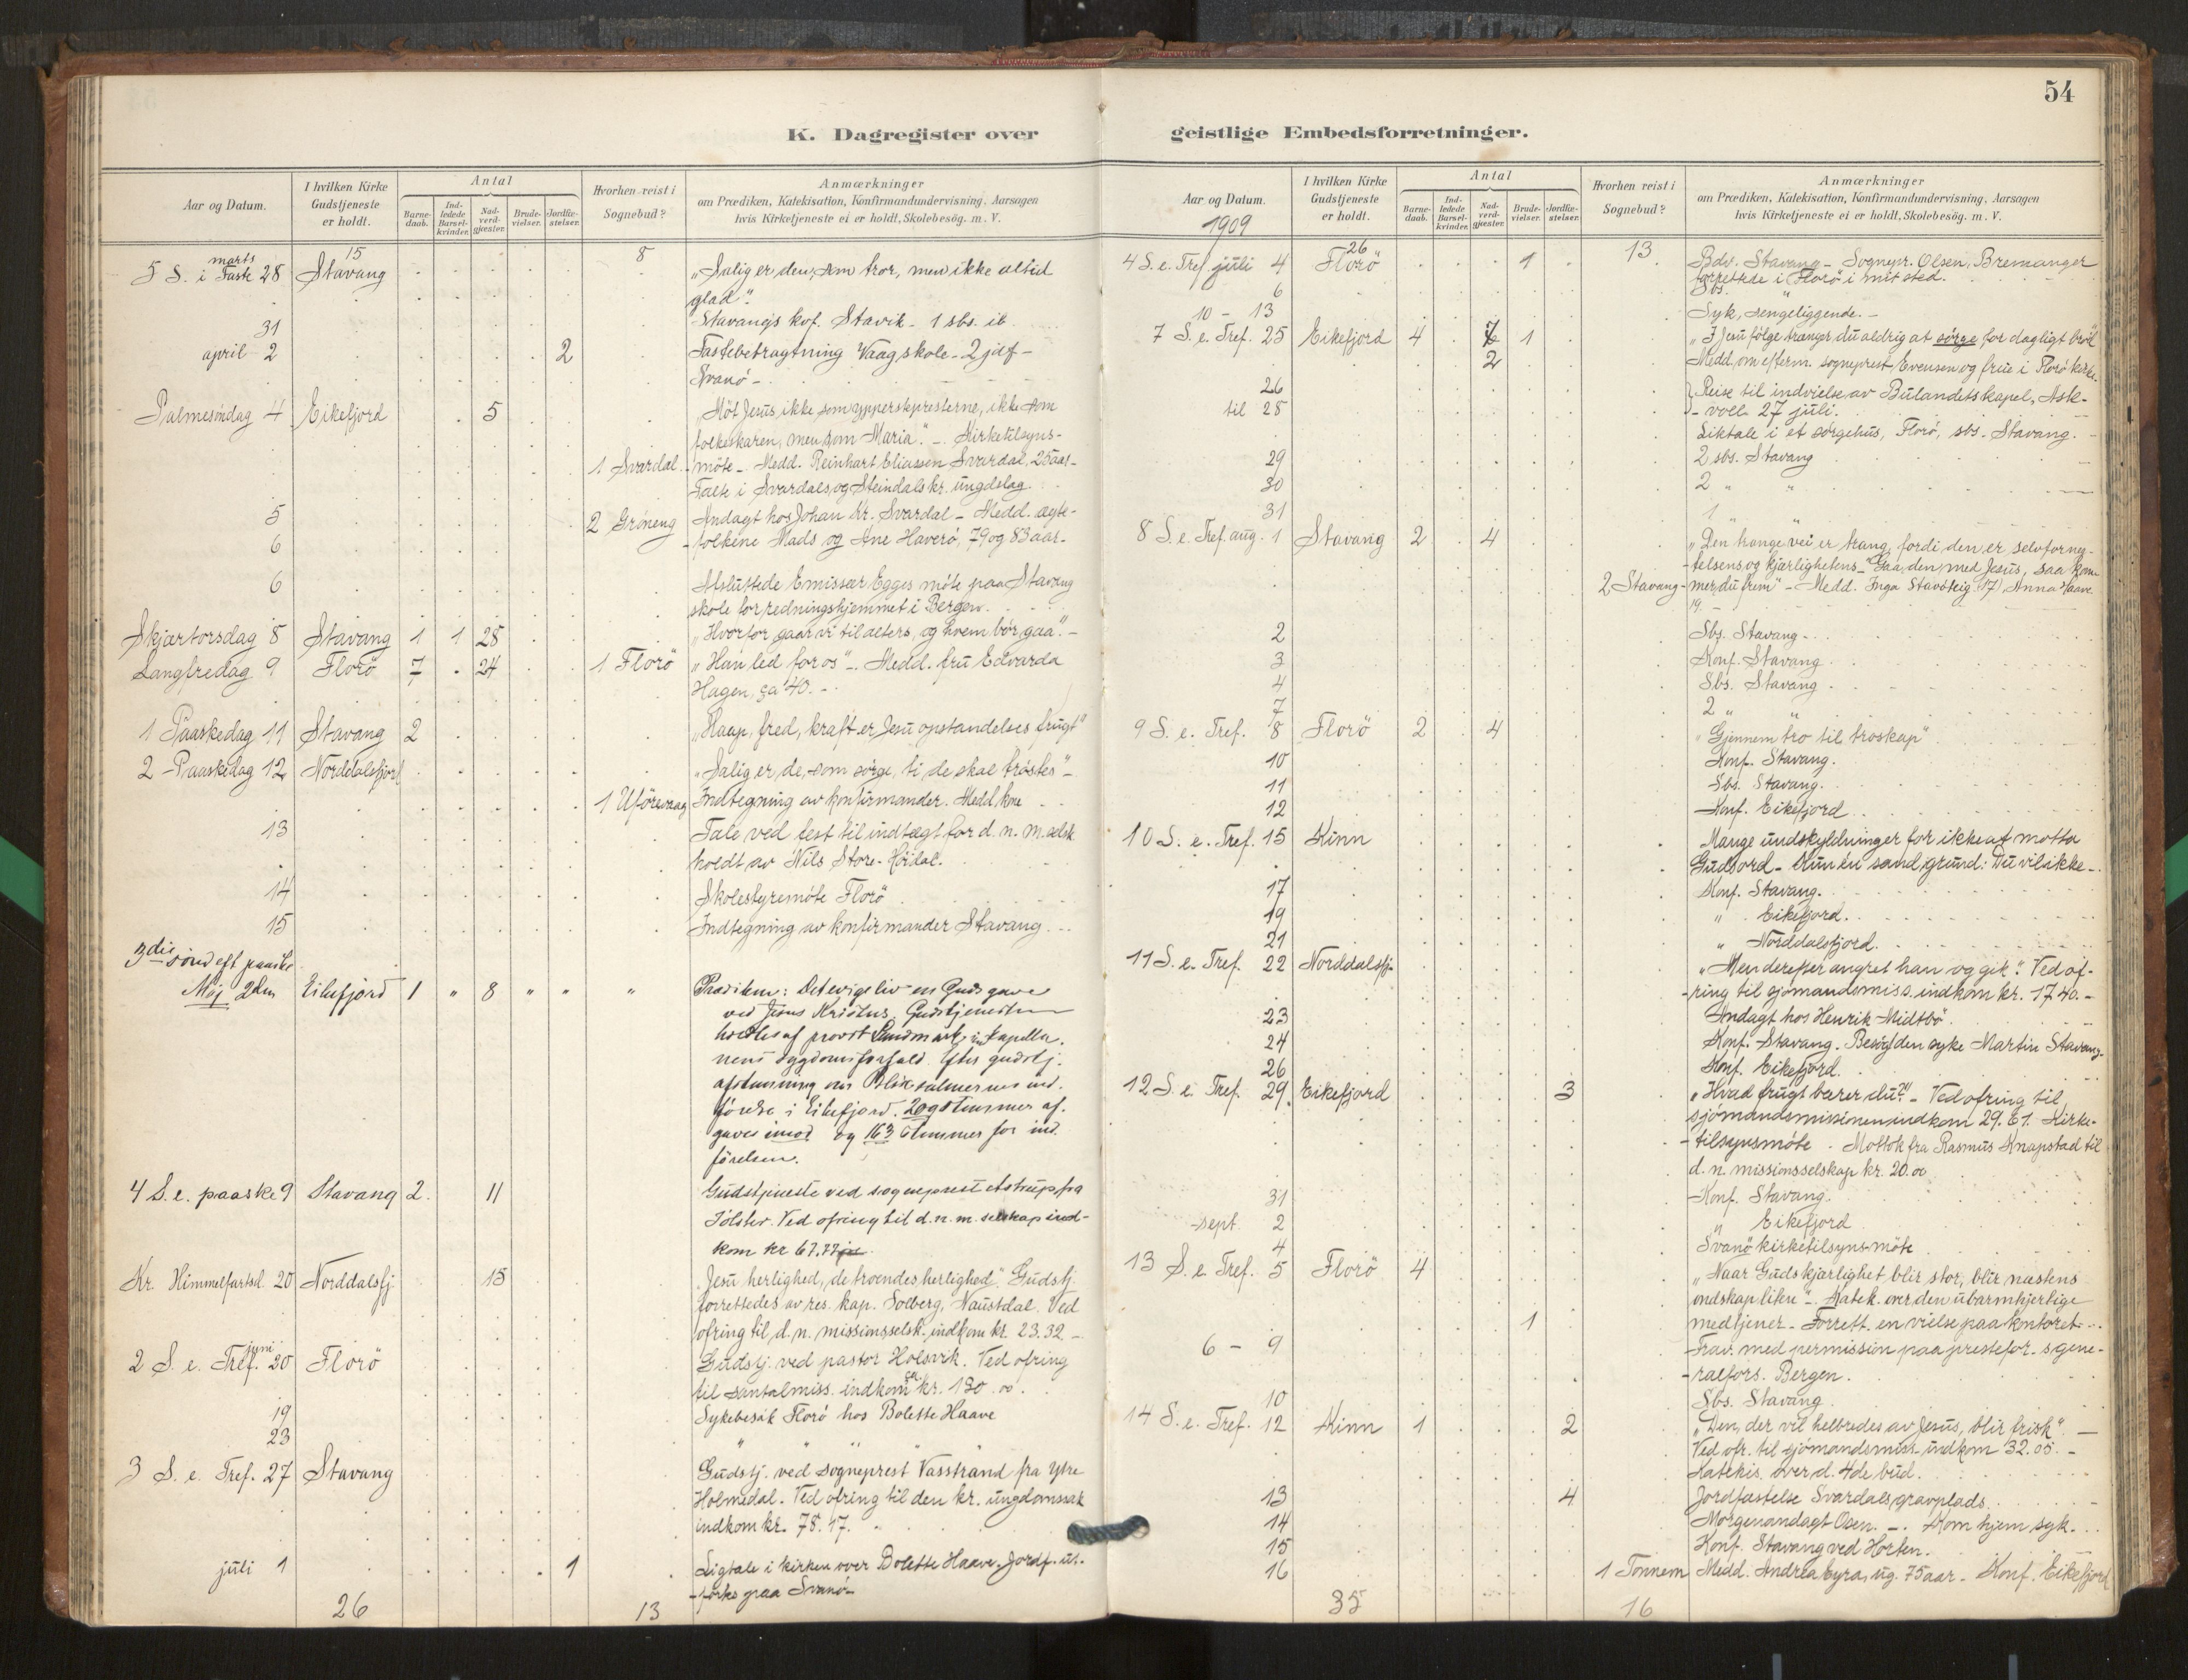 54
K. Dagregister over
geistlige Embedsforretninger.
Aar og Datum.
I hvilken Kirke Gudstjeneste er holdt.
Antal
Barne-daab.
Ind-ledede Barsel-kvinder.
Nad-verd-gjæster.
Brude-vielser.
Jordfæ-stelser.
Hvorhen reist i Sognebud?
Anmærkninger
om Prædiken, Katekisation, Konfirmandundervisning, Aarsagen
hvis Kirketjeneste ei er holdt, Skolebesög. m. V.
15 8
5 S. i Faste marts 28 Stavang „Salig er den, som tror, men ikke altid
glad".
31 Stavangs kof. Stavik - 1 sbs. ib.
april 2 2 Fastebetragtning Vaagskole - 2 jdf -
Svanö -
Palmesöndag 4 Eikefjord 5 „Möt Jesus, ikke som ypperstepresterne, ikke som
folkeskaren, men som Maria." - Kirketilsyns-
1 Svardal - möte - Medd. Reinhart Eliassen Svardal, 25 aar -
Tale i Svardals og Steindals kr. ungdslag.
5 2 Gröneng Andagt hos Johan Kr. Svardal - Medd. ægte-
6 -folkene Mads og Ane Haverö, 79 og 83 aar -
6 Avsluttede Emissær Egges möte paa Stavang
skole for redningshjemmet i Bergen.
Skjærtorsdag 8 Stavang 1 1 28 „Hvorfor gaar vi til alters, og hvem bör gaa". -
Langfredag 9 Florö 7 24 1 Florö „Han led for os" -. Medd. fru Edvarda
Hagen, ca 40. -
1 Paaskedag 11 Stavang 2 „Haap, fred, kraft er Jesu opstandelses frugt"
2 - Paaskedag 12 Norddalsfjord „Salig er de, som sörge, ti de skal tröstes" -
1 Uförevaag Indtegning av konfirmander. Medd. kone
13 Tale ved fest til indtægt for d. n. m. selsk.
holdt av Nils Store-Höidal.
14 Skolestyremöte Florö
15 Indtegning av konfirmander Stavang.
3die sönd eft paaske
Maj 2den Eikefjord 1 " 8 " " " Prædiken: Det evige liv en Guds gave
ved Jesus Kristus. Gudstjenesten
holdtes af provst Landmark, in kapella-
nens sygdomsforfald. Efter gudstj.
afstemning om Blix salmernes ind-
förelse i Eikefjord. 20 stemmer af-
gaves imod og 163 stemmer for ind-
förelsen.
4 S. e. paaske 9 Stavang 2. 11 Gudstjeneste ved sogneprest Astrup fra
Jölster. Ved ofring til d. n. m. selskap ind-
kom kr 67.77
Kr. Himmelfartsd. 20 Norddalsfj 15 „Jesu herlighed, de troendes herlighed". Gudstj.
forrettedes av res. kap. Solberg, Naustdal. Ved
ofring til d. n. missionsselsk. indkom kr. 23.32 -
2 S. e. Tref. juni 20 Florö Gudstj. ved pastor Holsvik. Ved ofring
til santalmiss. indkom ca. kr. 130.00.
19 Sykebesök Florö hos Bolette Haave
23 " " " "
3 S. e. Tref. 27 Stavang Gudstj. ved sogneprest Vasstrand fra Ytre
Holmedal. Ved ofring til den kr. ungdomssak
indkom kr. 78.17.
juli 1 1 Ligtale i kirken over Bolette Haave. Jordf. ut-
-förke paa Svanö -
26 13
Aar og Datum.
1909
I hvilken Kirke Gudstjeneste er holdt.
Antal
Barne-daab.
Ind-ledede Barsel-kvinder.
Nad-verd-gjæster.
Brude-vielser.
Jordfæ-stelser.
Hvorhen reist i Sognebud?
Anmærkninger
om Prædiken, Katekisation, Konfirmandundervisning, Aarsagen
hvis Kirketjeneste ei er holdt, Skolebesög. m. V.
26 13
4 S. e. Tref. juli 4 Florö 1 Bdv. Stavang - Sognepr. Olsen, Bremanger
forrettede i Florö i mit sted.
6 Sbs. "
10 - 13 Syk, sengeliggende. -
7 S. e. Tref. 25 Eikefjord 4 7 1 „I Jesu fölge trænger du aldrig at sörge for dagligt bröd"
2 Medd. om efterm. sogneprest Evensen og frue i Florö kirke.
26 Reise til indvielse av Bulandets kapel, Ask-
til 28 -voll 27 juli.
Liktale i et sörgehus, Florö, sbs. Stavang.
29 2 sbs. Stavang
30 2 " "
31 1 "
8 S. e. Tref. aug. 1 Stavang 2 4 „Den trange vei er trang, fordi den er selvforneg-
-telsens og kjærlighetens - Gaa den med Jesus, saa kom-
2 Stavang - mer du frem" - Medd. Inga Stavöteig (17), Anna Haave
19. -
2 Sbs. Stavang -
3 Konf. Stavang.
4 Sbs. Stavang -
7 2 " "
9 S. e. Tref. 8 Florö 2 4 „Gjennem tro til troskap"
10 Konf. Stavang.
11 Sbs. Stavang.
12 Konf. Eikefjord.
10 S. e. Tref. 15 Kinn Mange undskyldninger for ikke at motta
Guds ord - Kun én sand grund: Du vil ikke -
17 Konf. Stavang.
19 " Eikefjord.
21 " Norddalsfjord.
11 S. e. Tref. 22 Norddalsfj. „Men derefter angret han og gik". Ved of-
-ring til sjömandsmiss. indkom kr. 17 40. -
23 Andagt hos Henrik Midtbö.
24 Konf. Stavang. Besög den syke Martin Stavang.
26 Konf. Eikefjord.
12 S. e. Tref. 29. Eikefjord 3 „Hvad frugt bærer du?" - Ved ofring til
sjömandsmissionen indkom 29.61. Kirke-
-tilsynsmöte. Mottok fra Rasmus Knapstad til
d. n. missionsselskap kr. 20.00
31 Konf. Stavang.
sept. 2 " Eikefjord
4 Svanö kirketilsynsmöte
13 S. e. Tref. 5 Florö 4 „Naar Guds kjærlighet blir stor, blir næstens
ondskap liten" -. Katek. over den ubarmhjertige
1 medtjener - Forrett. en vielse paa kontoret.
6 - 9 Frav. med permission paa prestefor.s gene-
-ralfors. Bergen.
10 Sbs. Stavang.
14 S. e. Tref. 12 Kinn 1 2 „Den, der vil helbredes av Jesus, blir frisk". -
Ved ofr. til sjömandsmiss. indkom 32.05. -
Katekis. over d. 4de bud.
13 4 Jordfæstelse Svardals gravplads.
14 Morgenandagt Osen. -. Kom hjem syk.
15 Konf. Stavang ved Horten.
16 1 Tonnem Medd. Andrea Eyra, ug. 75 aar - Konf. Eikefjord
35 16